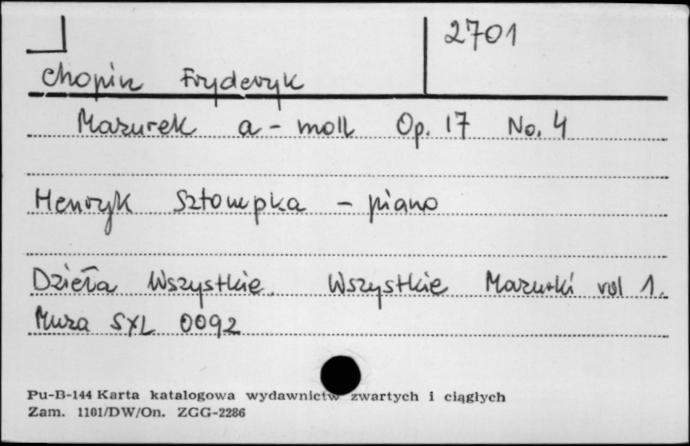 2701
Chopin Fryderyk
Mazurek a-moll Op. 17 No. 4
Henryk Sztompka - piano
Dzieła Wszystkie. Wszystkie Mazurki vol 1.
Muza SXL 0092
Pu-B-144 Karta katalogowa wydawnictw zwartych i ciągłych
Zam. 1101/DW/On. ZGG-2286